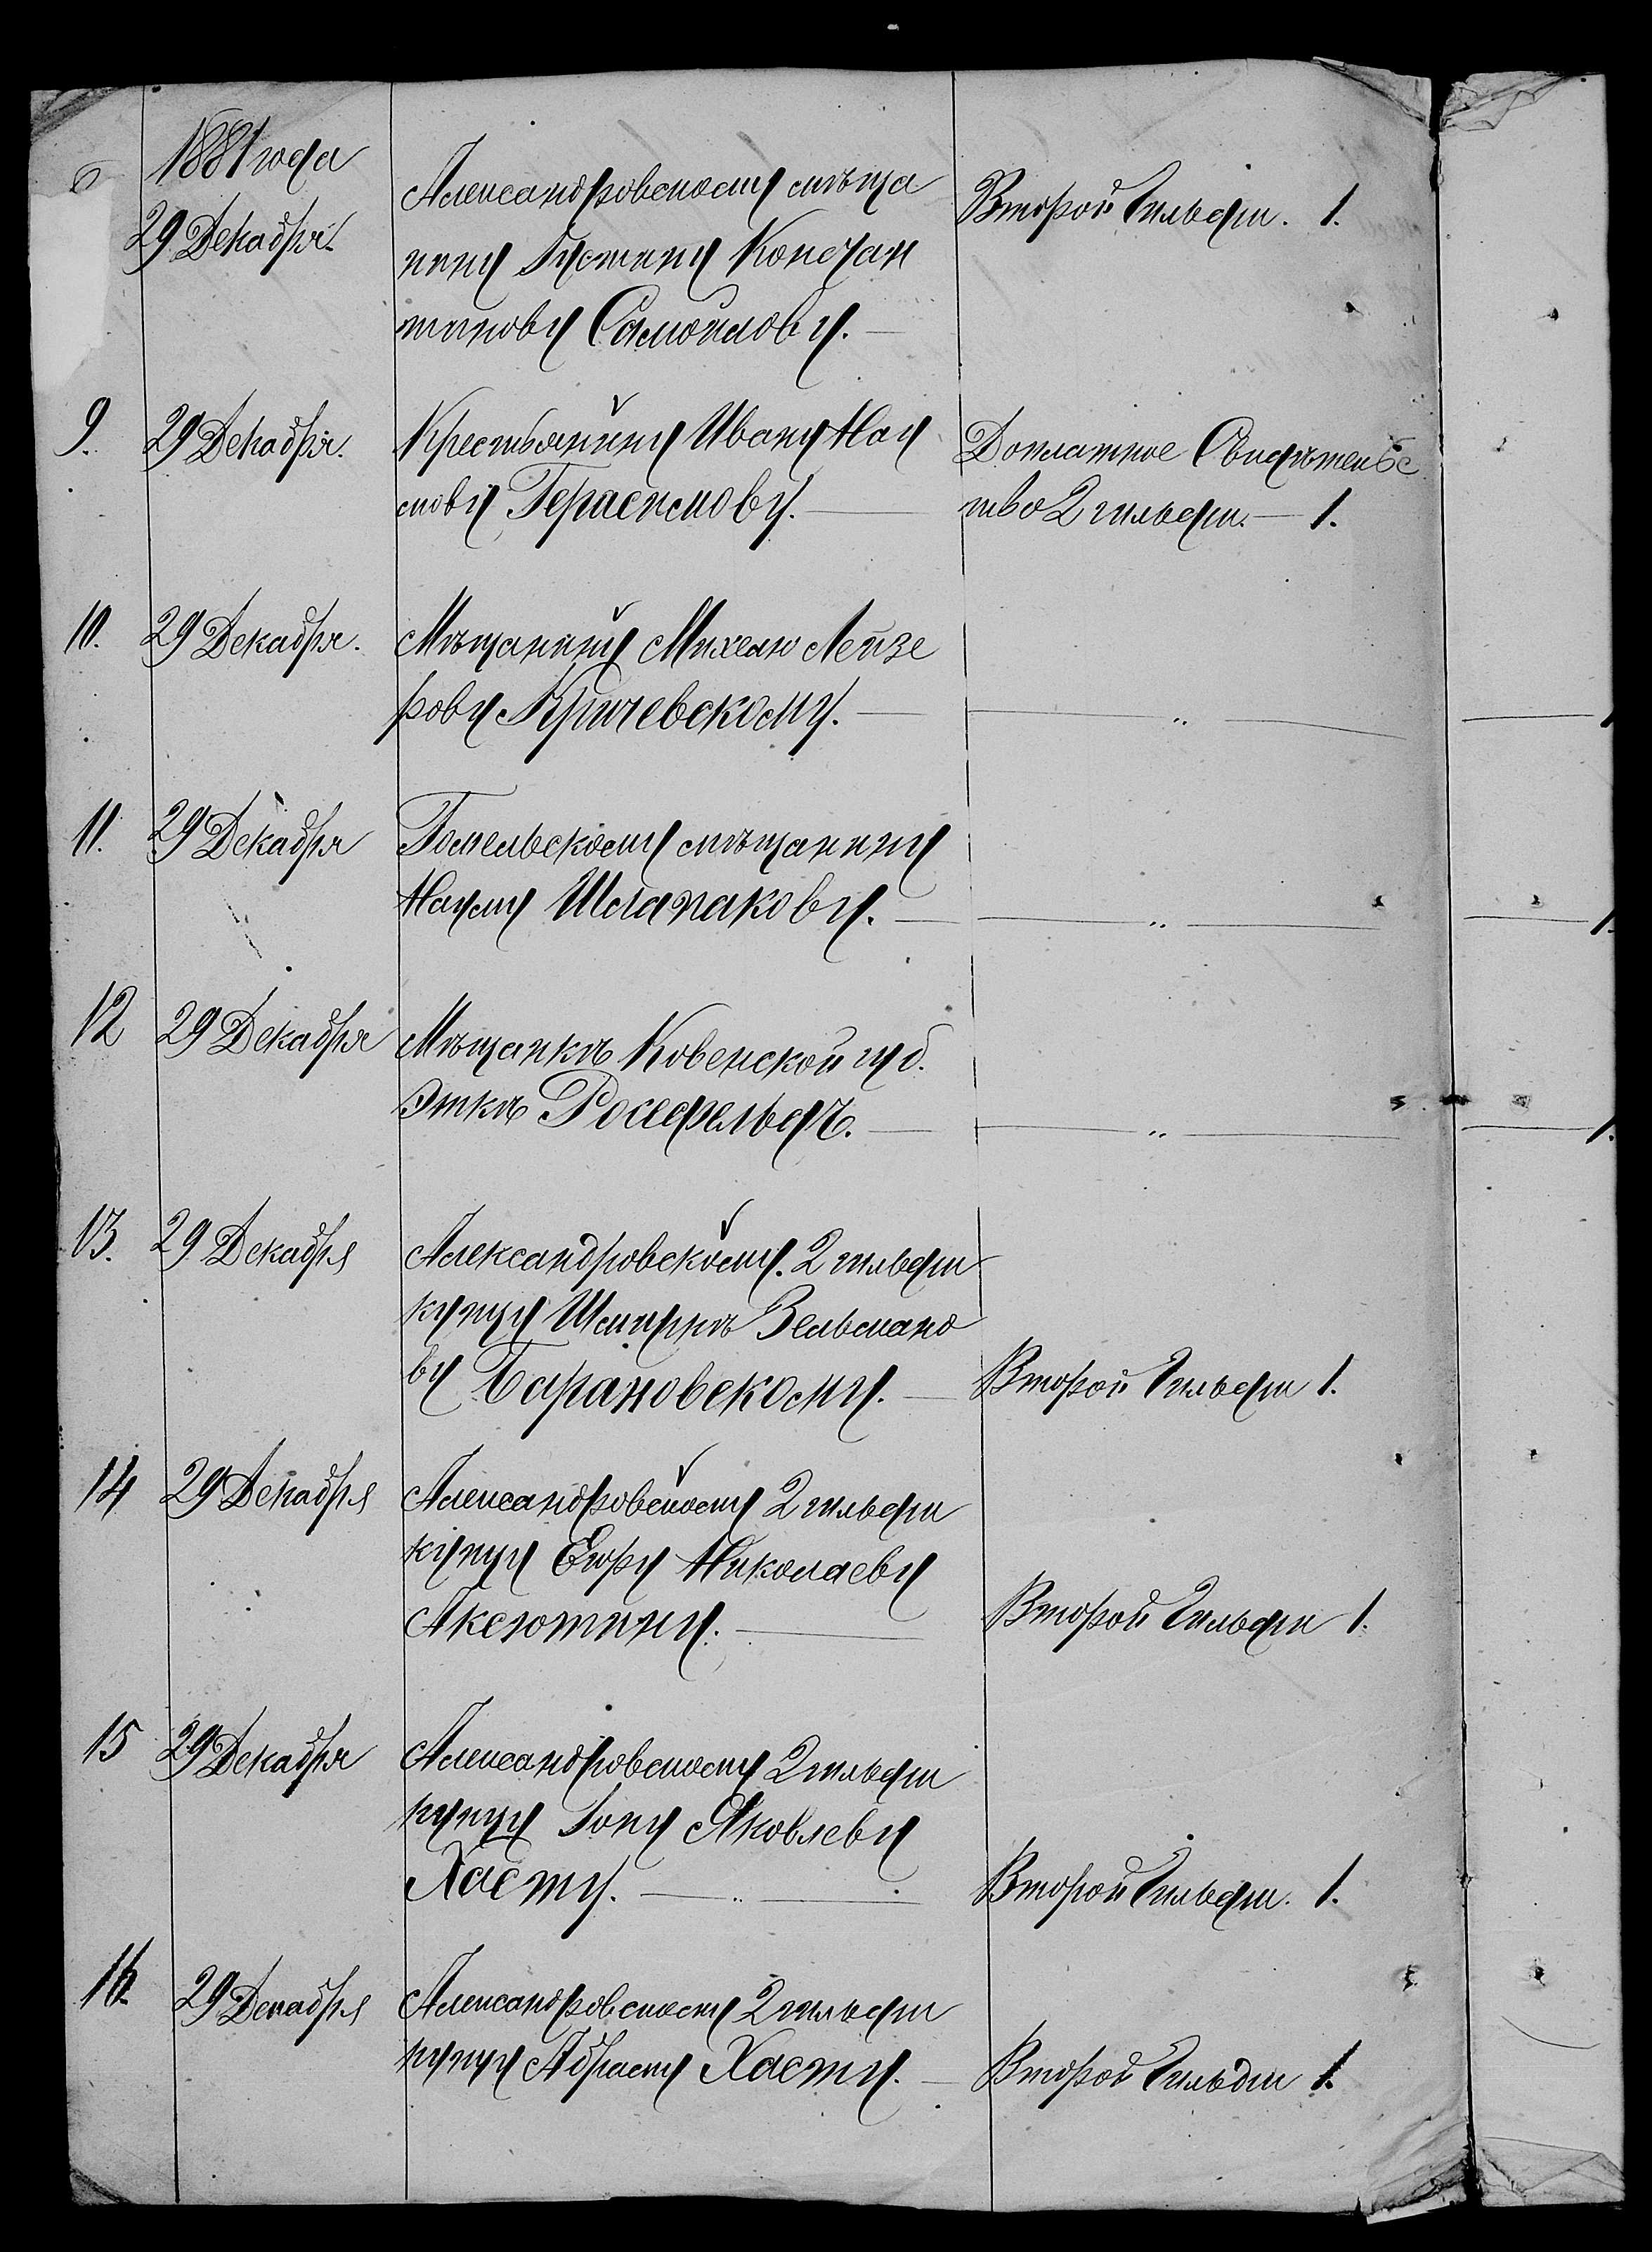 1881 года
29 Декабря. Александровскому мѣща
нину Іустину Констан
тинову Самойлову. — Второй Гильдіи. 1.
9. 29 Декабря. Крестьянину Ивану Нау
мову Герасимову. — Доплатное Свидѣтельс
тво 2 гильдіи. — 1.
10. 29 Декабря. Мѣщанину Михелю Лейзе
рову Кричевскому. — „ — 1
11. 29 Декабря Гомельскому мѣщанину
Науму Шлапакову. — „ — 1.
12 29 Декабря Мѣщанкѣ Ковенской губ.
Эткѣ Росефельдъ. — „ — 1.
13. 29 Декабря Александровскому 2 гильдіи
купцу Шмуркѣ Зельмано
ву Барановскому. — Второй Гильдіи 1.
14 29 Декабря Александровскому 2 гильдіи
купцу Егору Николаеву
Аксютину. — Второй Гильдіи 1.
15 29 Декабря Александровскому 2 гильдіи
купцу Іону Яковлеву
Хасту. — „ — Второй Гильдіи. 1.
16. 29 Декабря Александровскому 2 гильдіи
купцу Абраму Хасту. — Второй Гильдіи 1.